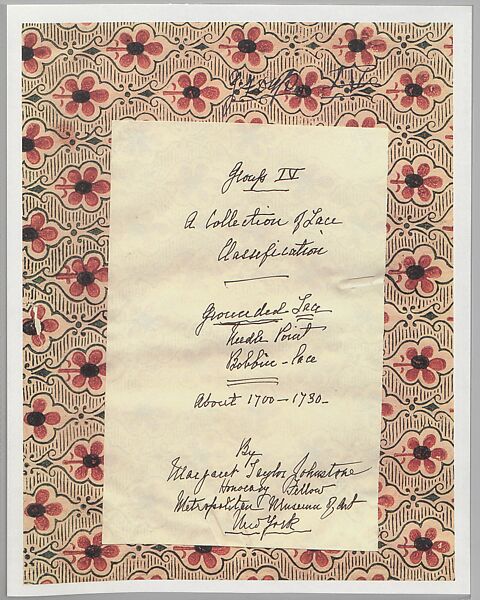 Group IV
Group IV
A Collection of Lace
Classification
Grounded Lace
Needle Point
Bobbin-Lace
About 1700-1730-
By
Margaret Taylor Johnstone
Honorary Fellow
Metropolitan Museum of Art
New York